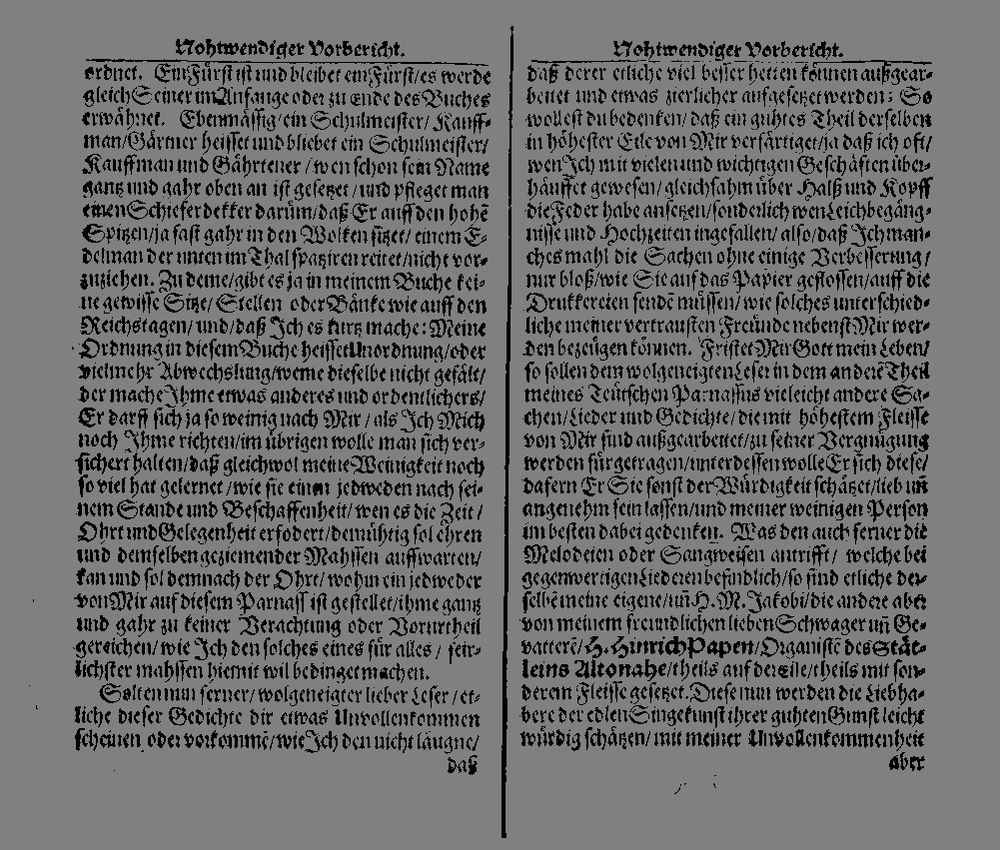 Nohtwendiger Vorbericht.
ordnet. Ein Fürst ist und bleibet ein Fürst/es werde
gleich Seiner im Anfange oder zu ende des Buches
erwähnet. Ebenmässig/ein Schulmeister/Kauff-
man/Gärtner heisset und bliebet ein Schulmeister/
Kauffman und Gährtener/wen schon sein Name
gantz und gahr oben an ist gesetzet/und pfleget man
einen Schieferdekker darüm/daß Er auff den hohē
Spitzen/ja fast gahr in den Wolken sitzet/einem E-
delman der unten im Thal spatziren reitet/nicht vor-
zuziehen. Zu deme/gibt es ja in meinem Buche kei-
ne gewisse Sitze/Stellen oder Bänke wie auff den
Reichstagen/und/daß Ich es kurtz mache: Meine
Ordnung in diesem Buche heisset Unordnung/oder
vielmehr Abwechslung/weme dieselbe nicht gefält/
der mache Ihme etwas anderes und ordentlichers/
Er darff sich ja so weinig nach Mir/als Ich Mich
noch Ihme richten/im übrigen wolle man sich ver-
sichert halten/daß gleichwol meine Weinigkeit noch
so viel hat gelernet/wie sie einen jedweden nach sei-
nem Stande und Beschaffenheit/wen es die Zeit/
Ohrt und Gelegenheit erfodert/demühtig sol ehren
und demselben geziemender Mahssen auffwarten/
kan und sol demnach der Ohrt/wohin ein jedweder
von Mir auf diesem Parnass ist gestellet/ihme gantz
und gahr zu keiner Verachtung oder Vorurtheil
gereichen/wie Ich den solches eines für alles/feir-
lichster mahssen hiemit wil bedinget machen.
Solten nun ferner/wolgeneigter lieber Leser/et-
liche dieser Gedichte dir etwas Unvollenkommen
scheinen oder vorkommē/wie Ich den nicht läugne/
daß
Nohtwendiger Vorbericht.
daß derer etliche viel besser hetten können außgear-
beitet und etwas zierlicher aufgesetzet werden: So
wollest du bedenken/daß ein guhtes Theil derselben
in höhester Eile von Mir verfärtiget/ja daß ich oft/
wen Ich mit vielen und wichtigen Geschäften über-
häuffet gewesen/gleichsahm über Halß und Kopff
die Feder habe ansetzen/sonderlich wen Leichbegäng-
nisse und Hochzeiten ingefallen/also/daß Ich man-
ches mahl die Sachen ohne einige Verbesserung/
nur bloß/wie Sie auf das Papier geflossen/auff die
Drukkereien sendē müssen/wie solches unterschied-
liche meiner vertrausten Freünde nebenst Mir wer-
den bezeügen können. Fristet Mir Gott mein Leben/
so sollen dem wolgeneigten Leser in dem anderē Theil
meines Teütschen Parnassus vieleicht andere Sa-
chen/Lieder und Gedichte/die mit höhestem Fleisse
von Mir sind außgearbeitet/zu seiner Vergnügung
werden fürgetragen/unterdessen wolle Er sich diese/
dafern Er Sie sonst der Würdigkeit schätzet/lieb uñ
angenehm sein lassen/und meiner weinigen Person
im besten dabei gedenken. Was den auch ferner die
Melodeien oder Sangweisen antrifft/ welche bei
gegenwertigen Liederen befindlich/so sind etliche der-
selbē meine eigene/uñ H. M. Jakobi/die andere aber
von meinem freundlichen lieben Schwager uñ Ge-
vatterē/H. Hinrich Papen/Organistē des Stät-
leins Altonahe/theils auf der eile/theils mit son-
derem Fleisse gesetzet. Diese nun werden die Liebha-
bere der edlen Singekunst ihrer guhten Gunst leicht
würdig schätzen/mit meiner Unvollenkommenheit
aber